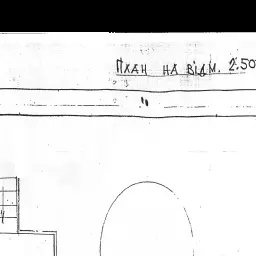 ПЛАН НА ВІДМ. 2.50